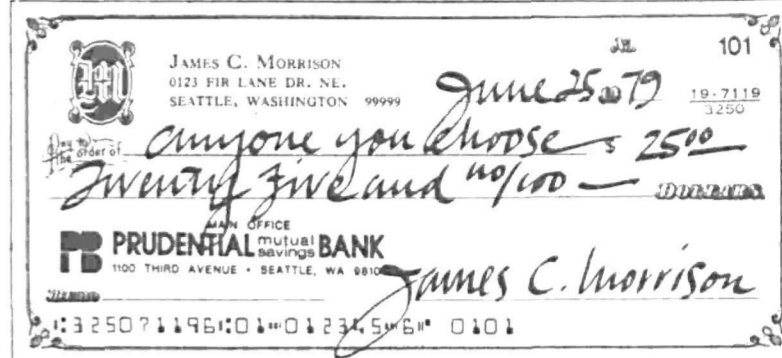 M
No. 101
JAMES C. MORRISON
0123 FIR LANE DR. NE.
SEATTLE, WASHINGTON 99999
June 25 19 79
19-7119
3250
Pay to
the order of anyone you choose $ 25 00
Twenty five and no/100 — DOLLARS
MAIN OFFICE
PRUDENTIAL mutual savings BANK
1100 THIRD AVENUE • SEATTLE, WA 9810
MEMO James C. Morrison
⑆325071196⑆01⑈012345⑈6⑈ 0101